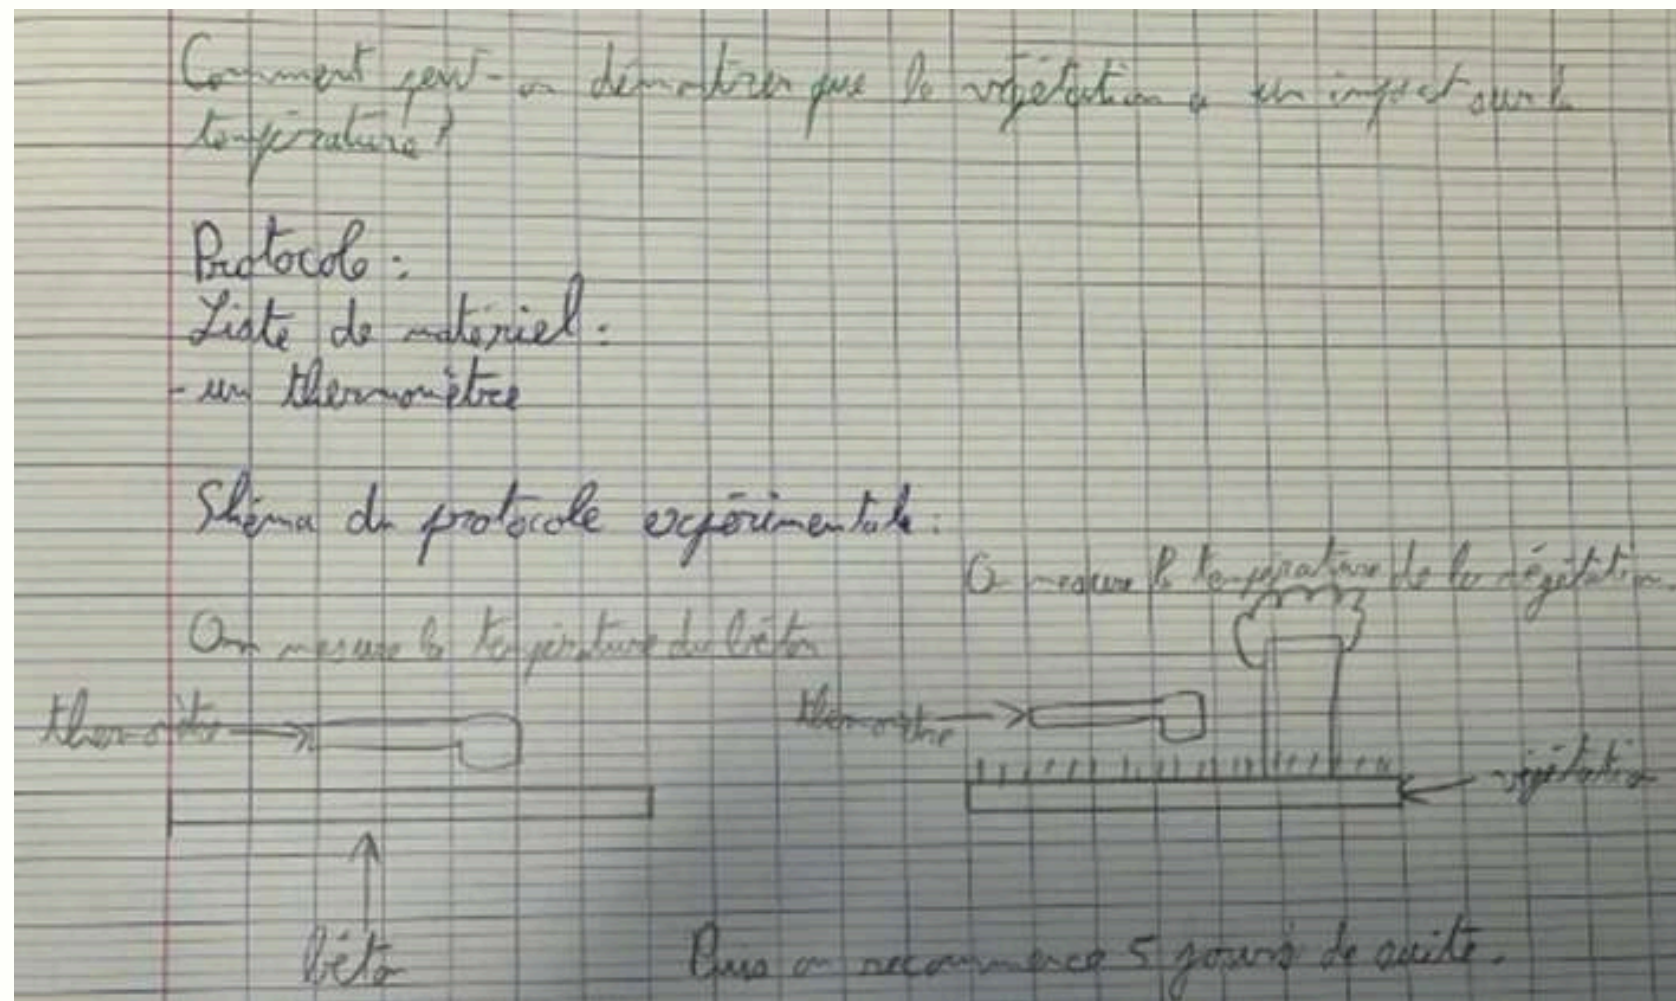 Comment peut-on démontrer que la végétation a un impact sur la
température?
Protocole :
Liste de matériel :
- un thermomètre
Shéma du protocole expérimentale :
On mesure la température de la végétation
On mesure la température du béton
thermomètre
thermomètre
végétation
béton
Puis on recommence 5 jours de suite.